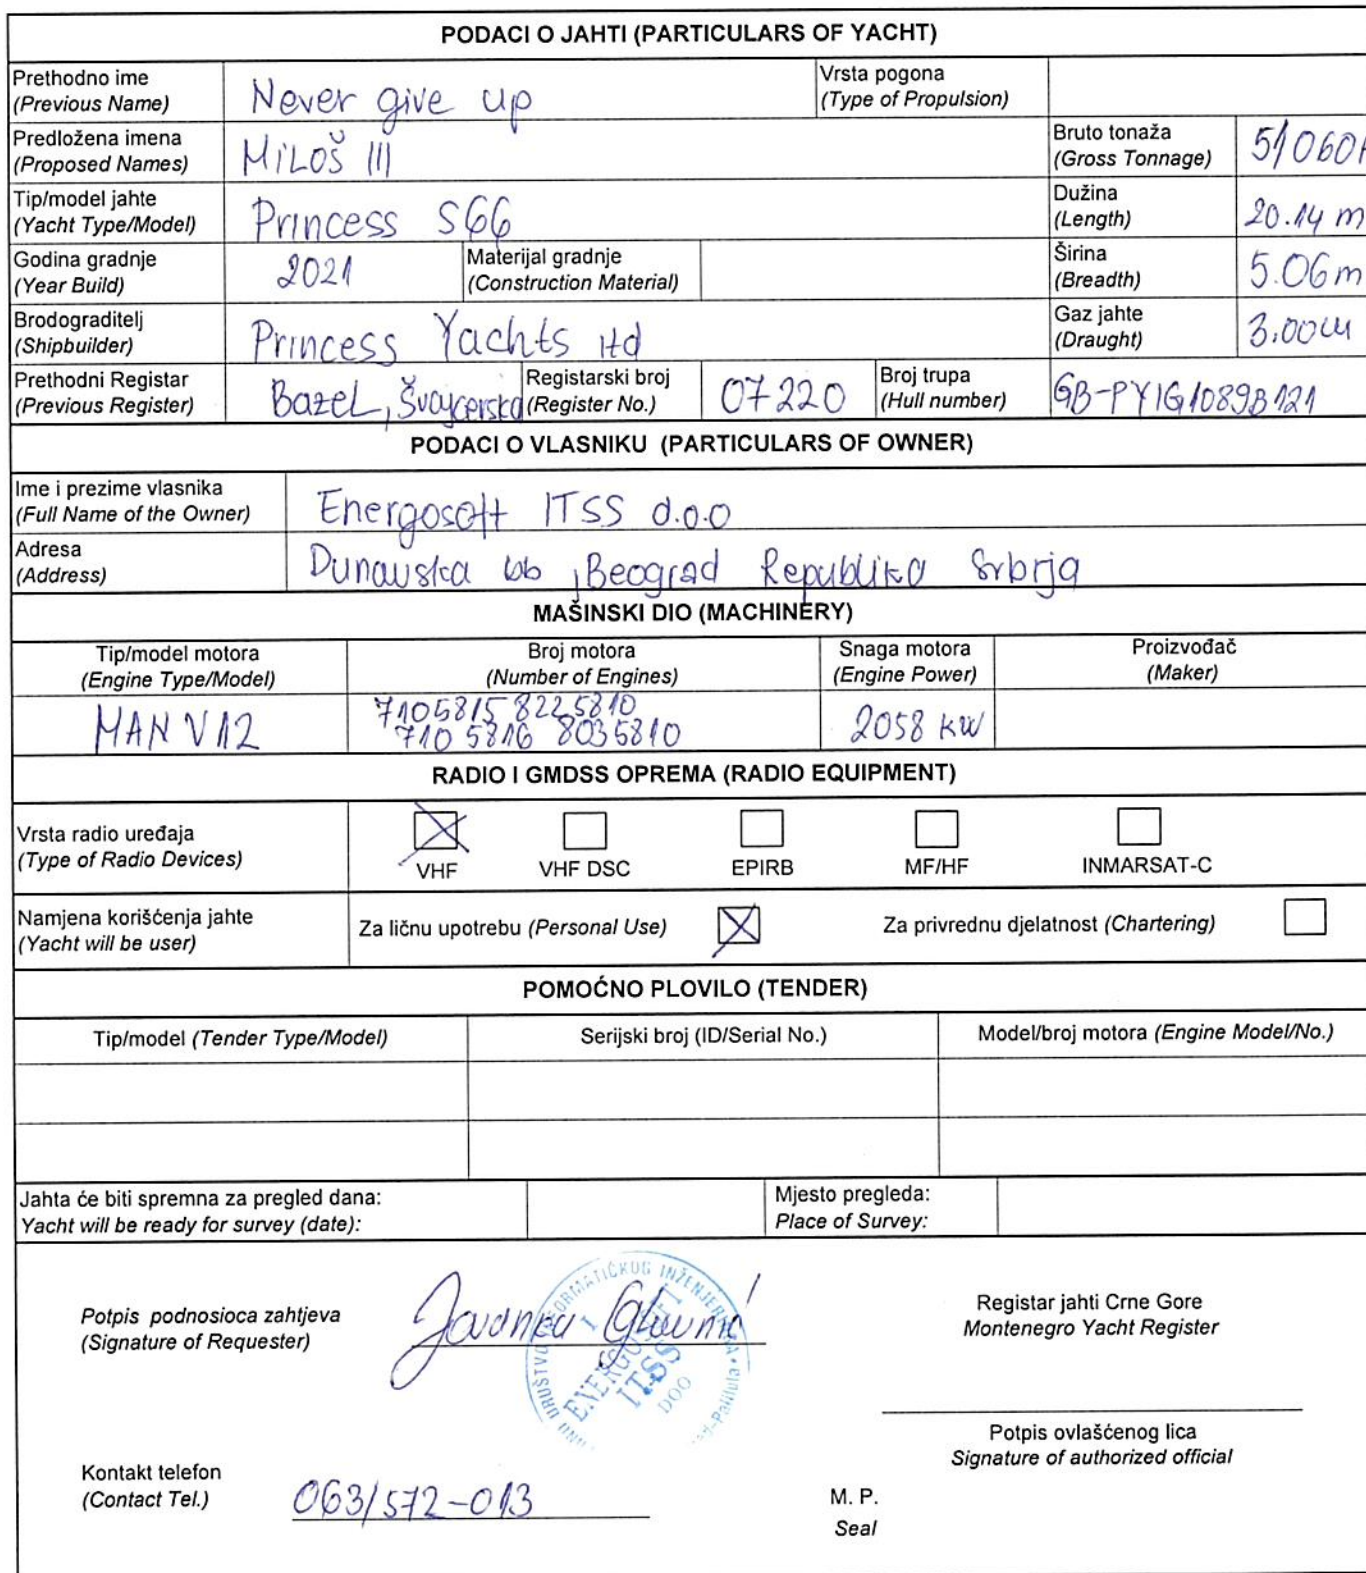 PODACI O JAHTI (PARTICULARS OF YACHT)
Prethodno ime
(Previous Name)
Never give up
Vrsta pogona
(Type of Propulsion)
Predložena imena
(Proposed Names)
MiLOŠ III
Bruto tonaža
(Gross Tonnage)
Tip/model jahte
(Yacht Type/Model)
Princess S66
Dužina
(Length)
20.14 m
Godina gradnje
(Year Build)
2021
Materijal gradnje
(Construction Material)
Širina
(Breadth)
5.06m
Brodograditelj
(Shipbuilder)
Princess Yachts ltd
Gaz jahte
(Draught)
3.00m
Prethodni Registar
(Previous Register)
Bazel, Švajcerska
Registarski broj
(Register No.)
07220
Broj trupa
(Hull number)
GB-PYIG1089B121
PODACI O VLASNIKU (PARTICULARS OF OWNER)
Ime i prezime vlasnika
(Full Name of the Owner)
Energosoft ITSS d.o.o
Adresa
(Address)
Dunavska bb, Beograd Republika Srbija
MAŠINSKI DIO (MACHINERY)
Tip/model motora
(Engine Type/Model)
Broj motora
(Number of Engines)
Snaga motora
(Engine Power)
Proizvođač
(Maker)
MAN V12
7105815 8225810
710 5816 8035810
2058 kW
RADIO I GMDSS OPREMA (RADIO EQUIPMENT)
Vrsta radio uređaja
(Type of Radio Devices)
VHF
VHF DSC
EPIRB
MF/HF
INMARSAT-C
Namjena korišćenja jahte
(Yacht will be user)
Za ličnu upotrebu (Personal Use)
Za privrednu djelatnost (Chartering)
POMOĆNO PLOVILO (TENDER)
Tip/model (Tender Type/Model)
Serijski broj (ID/Serial No.)
Model/broj motora (Engine Model/No.)
Jahta će biti spremna za pregled dana:
Yacht will be ready for survey (date):
Mjesto pregleda:
Place of Survey:
Potpis podnosioca zahtjeva
(Signature of Requester)
ENERGOSOFT
ITSS
DOO
Registar jahti Crne Gore
Montenegro Yacht Register
Potpis ovlašćenog lica
Signature of authorized official
Kontakt telefon
(Contact Tel.)
063/572-013
M. P.
Seal